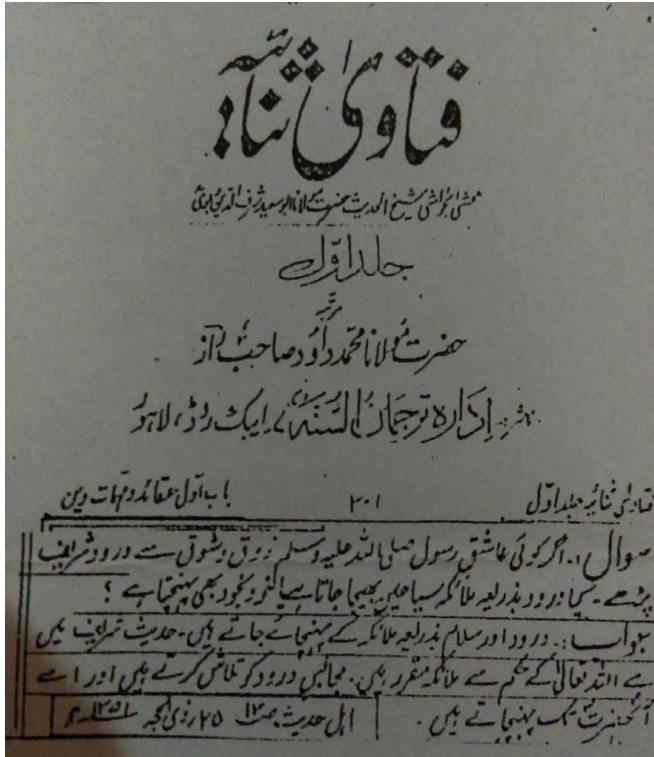 فتاویٰ ثنائیہ
محشی بحواشی شیخ الحدیث حضرت مولانا ابو سعید شرف الدین دہلوی
جلد اوّل
مرتبہ
حضرت مولانا محمد داؤد صاحب راز
ناشر ادارہ ترجمان السنہ ۷، ایبک روڈ، لاہور
فتاویٰ ثنائیہ جلد اوّل ۳۰۱ باب اول عقائد و مہمات دین
سوال :۔ اگر کوئی عاشق رسول صلی اللہ علیہ وسلم ذوق و شوق سے درود شریف
پڑھے ۔ کیا درود بذریعہ ملائکہ سیاحین بھیجا جاتا ہے یا خود بخود بھی پہنچتا ہے ؟
جواب :۔ درود اور سلام بذریعہ ملائکہ کے پہنچائے جاتے ہیں ۔ حدیث شریف میں
ہے اللہ تعالیٰ کے حکم سے ملائکہ مقرر ہیں ۔ مجالس درود کو تلاش کرتے ہیں اور اسے
آنحضرت تک پہنچاتے ہیں ۔ اہل حدیث ۲۵ ذی الحجہ ۱۳۵۱ھ